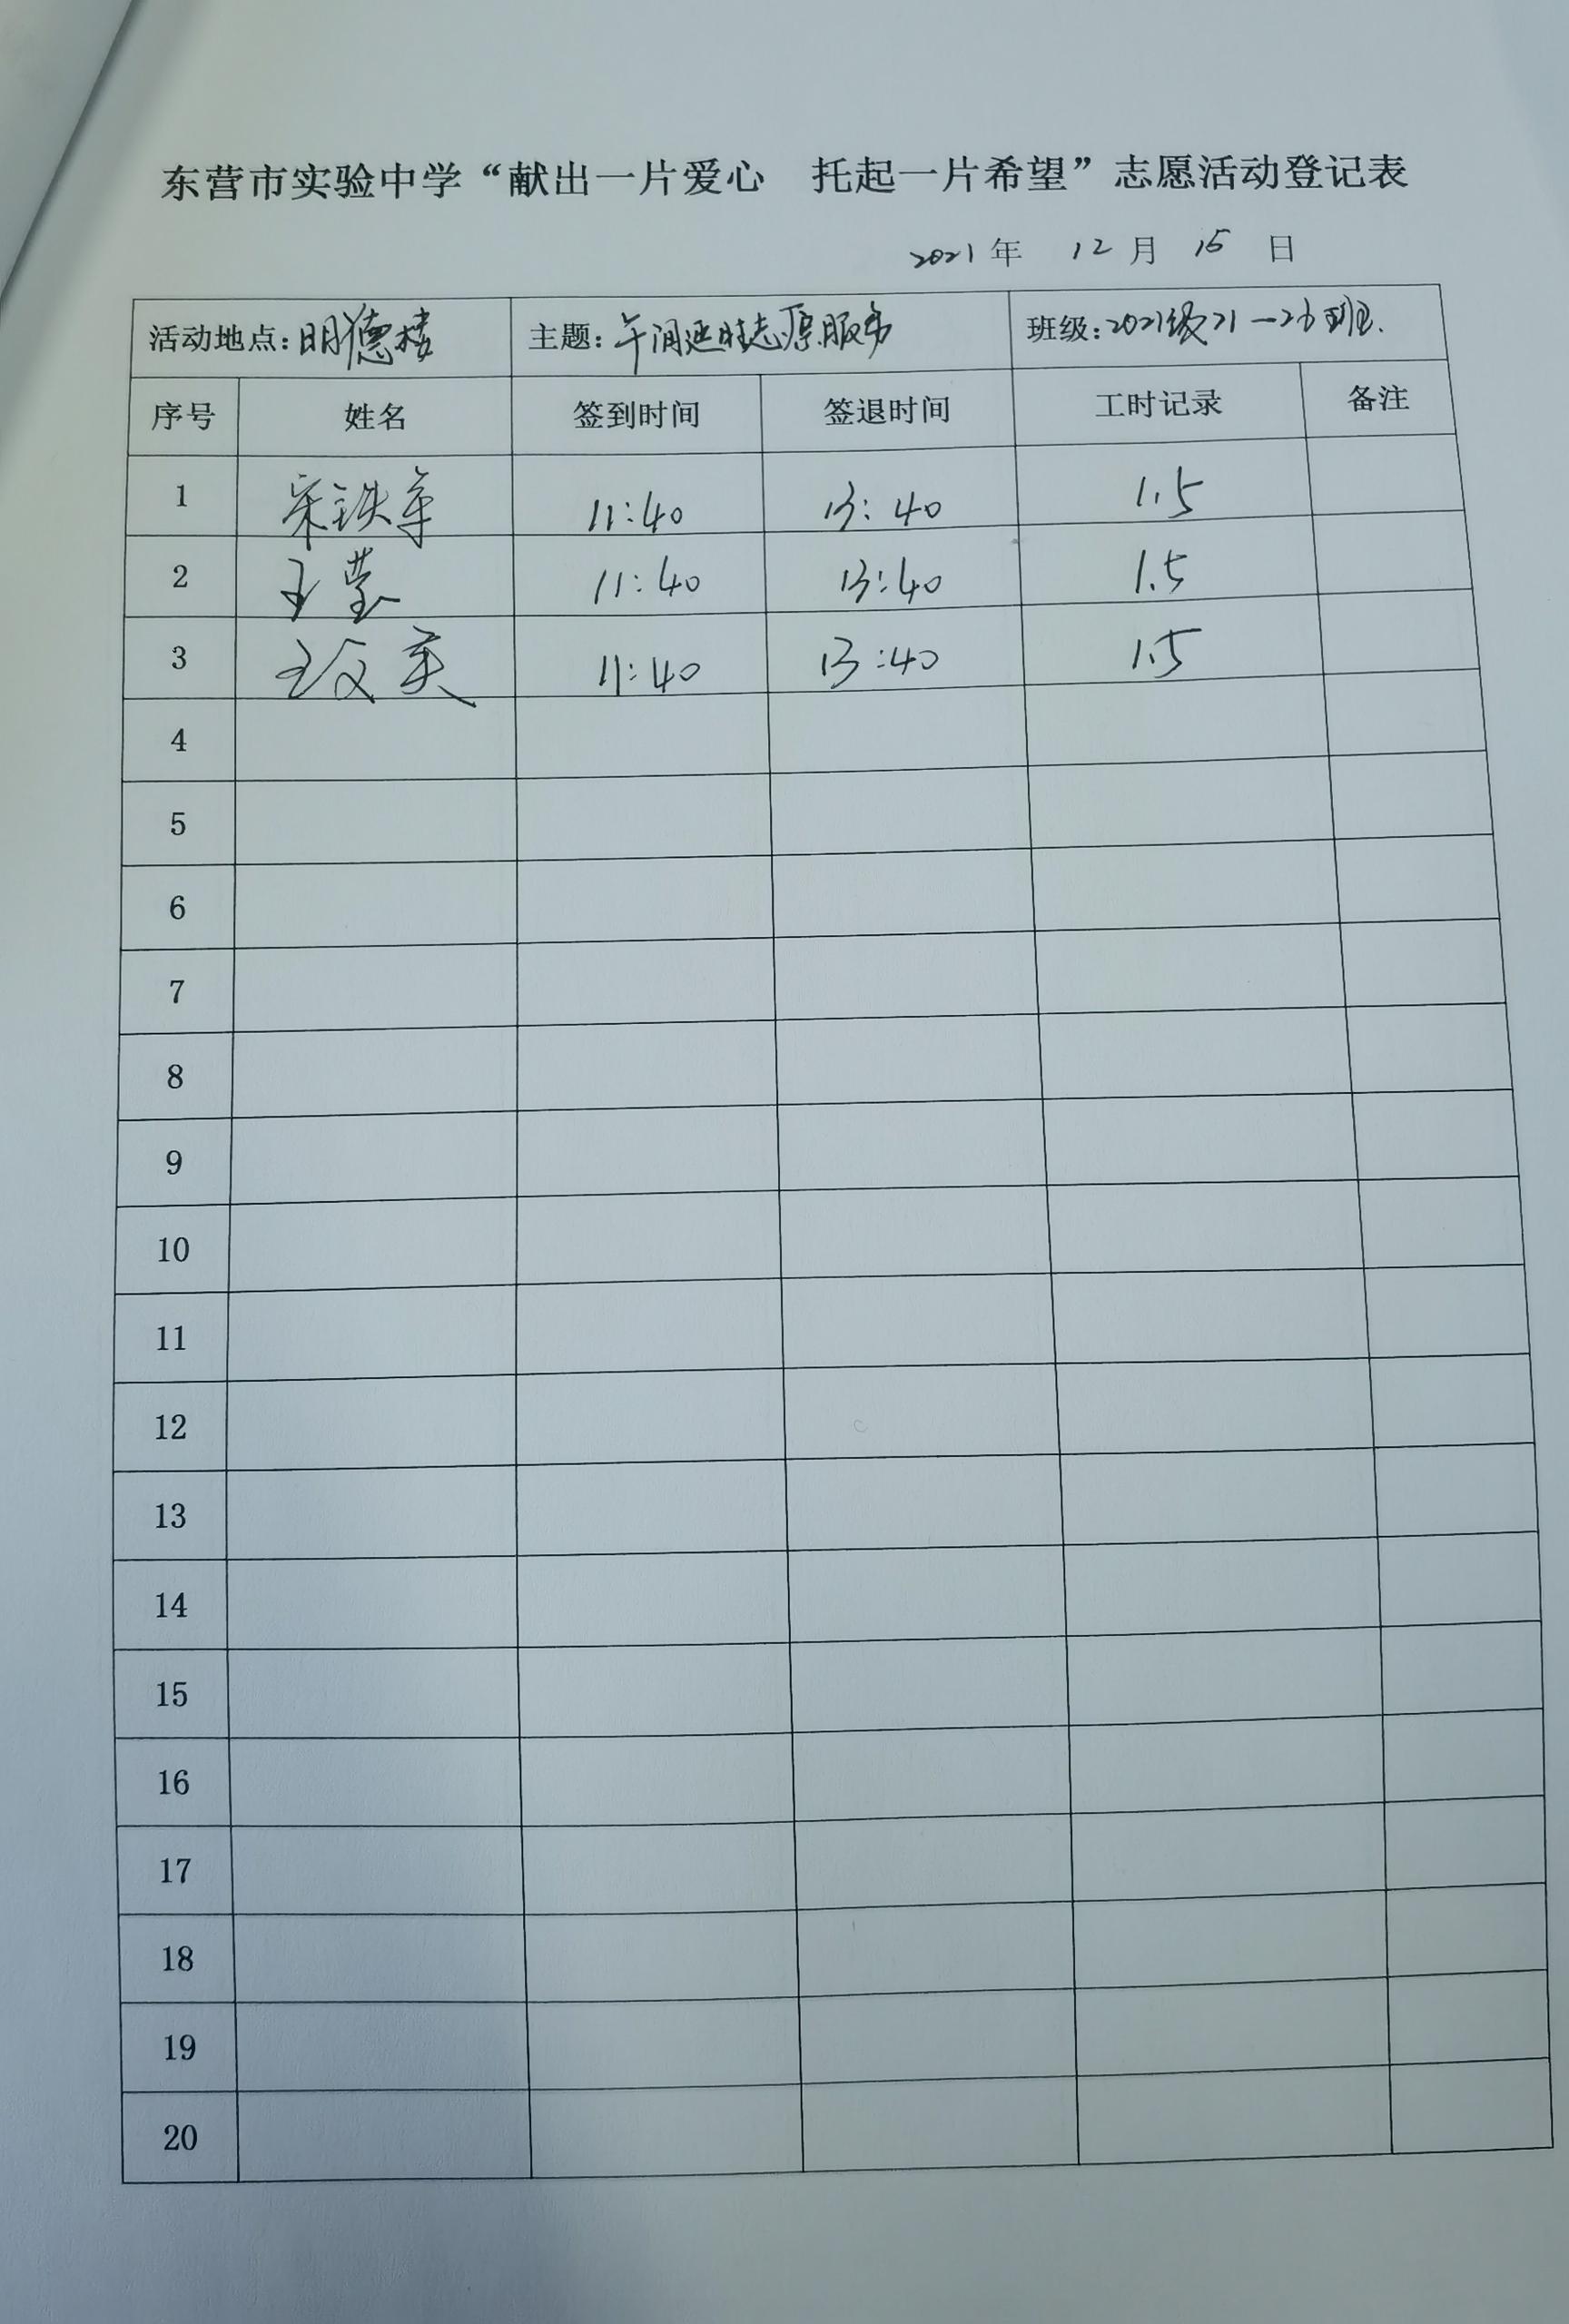 东营市实验中学“献出一片爱心 托起一片希望”志愿活动登记表
2021年 12月 15日
活动地点：明德楼 主题：午间延时志愿服务 班级：2021级21-26班.
序号 姓名 签到时间 签退时间 工时记录 备注
1 宋铁军 11:40 13:40 1.5
2 王莹 11:40 13:40 1.5
3 王文英 11:40 13:40 1.5
4
5
6
7
8
9
10
11
12
13
14
15
16
17
18
19
20